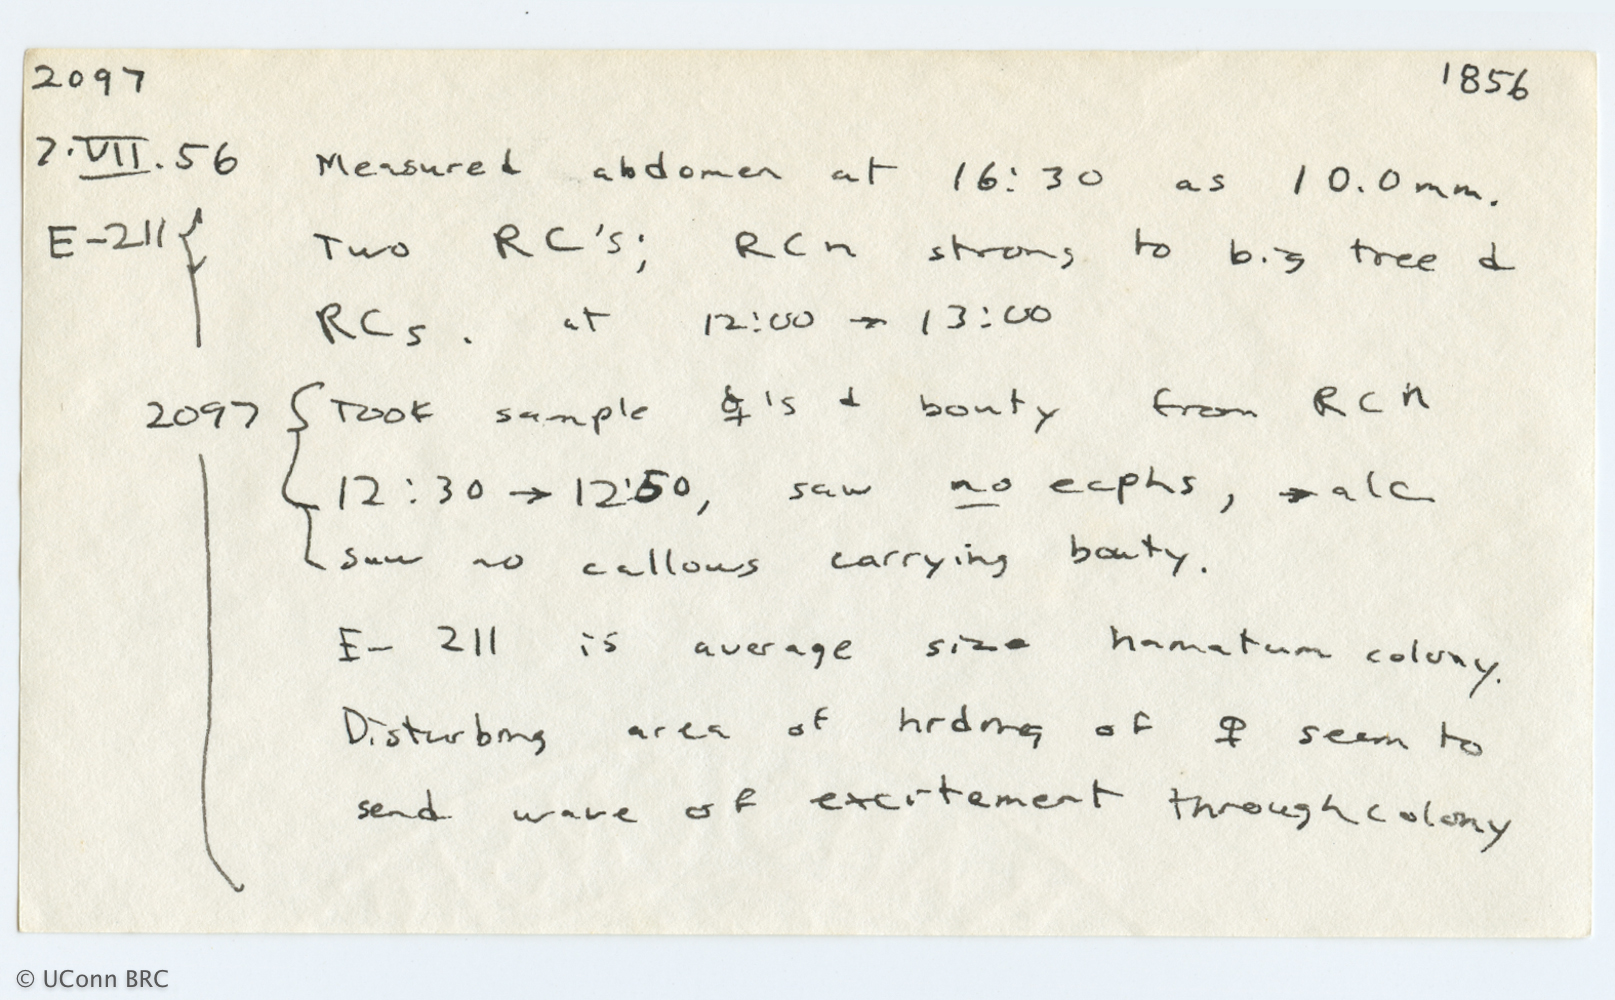 2097 1856
7.VII.56 Measured abdomen at 16:30 as 10.0 mm.
E-211 { Two RC's; RCn strong to big tree &
RCs. at 12:00 → 13:00
2097 { Took sample ☿'s & bouty from RCn
12:30 → 12:50, saw no ecphs, → alc
saw no callows carrying bouty.
E-211 is average size hamatum colony.
Disturbing area of hrdng of ♀ seem to
send wave of excitement through colony
© UConn BRC